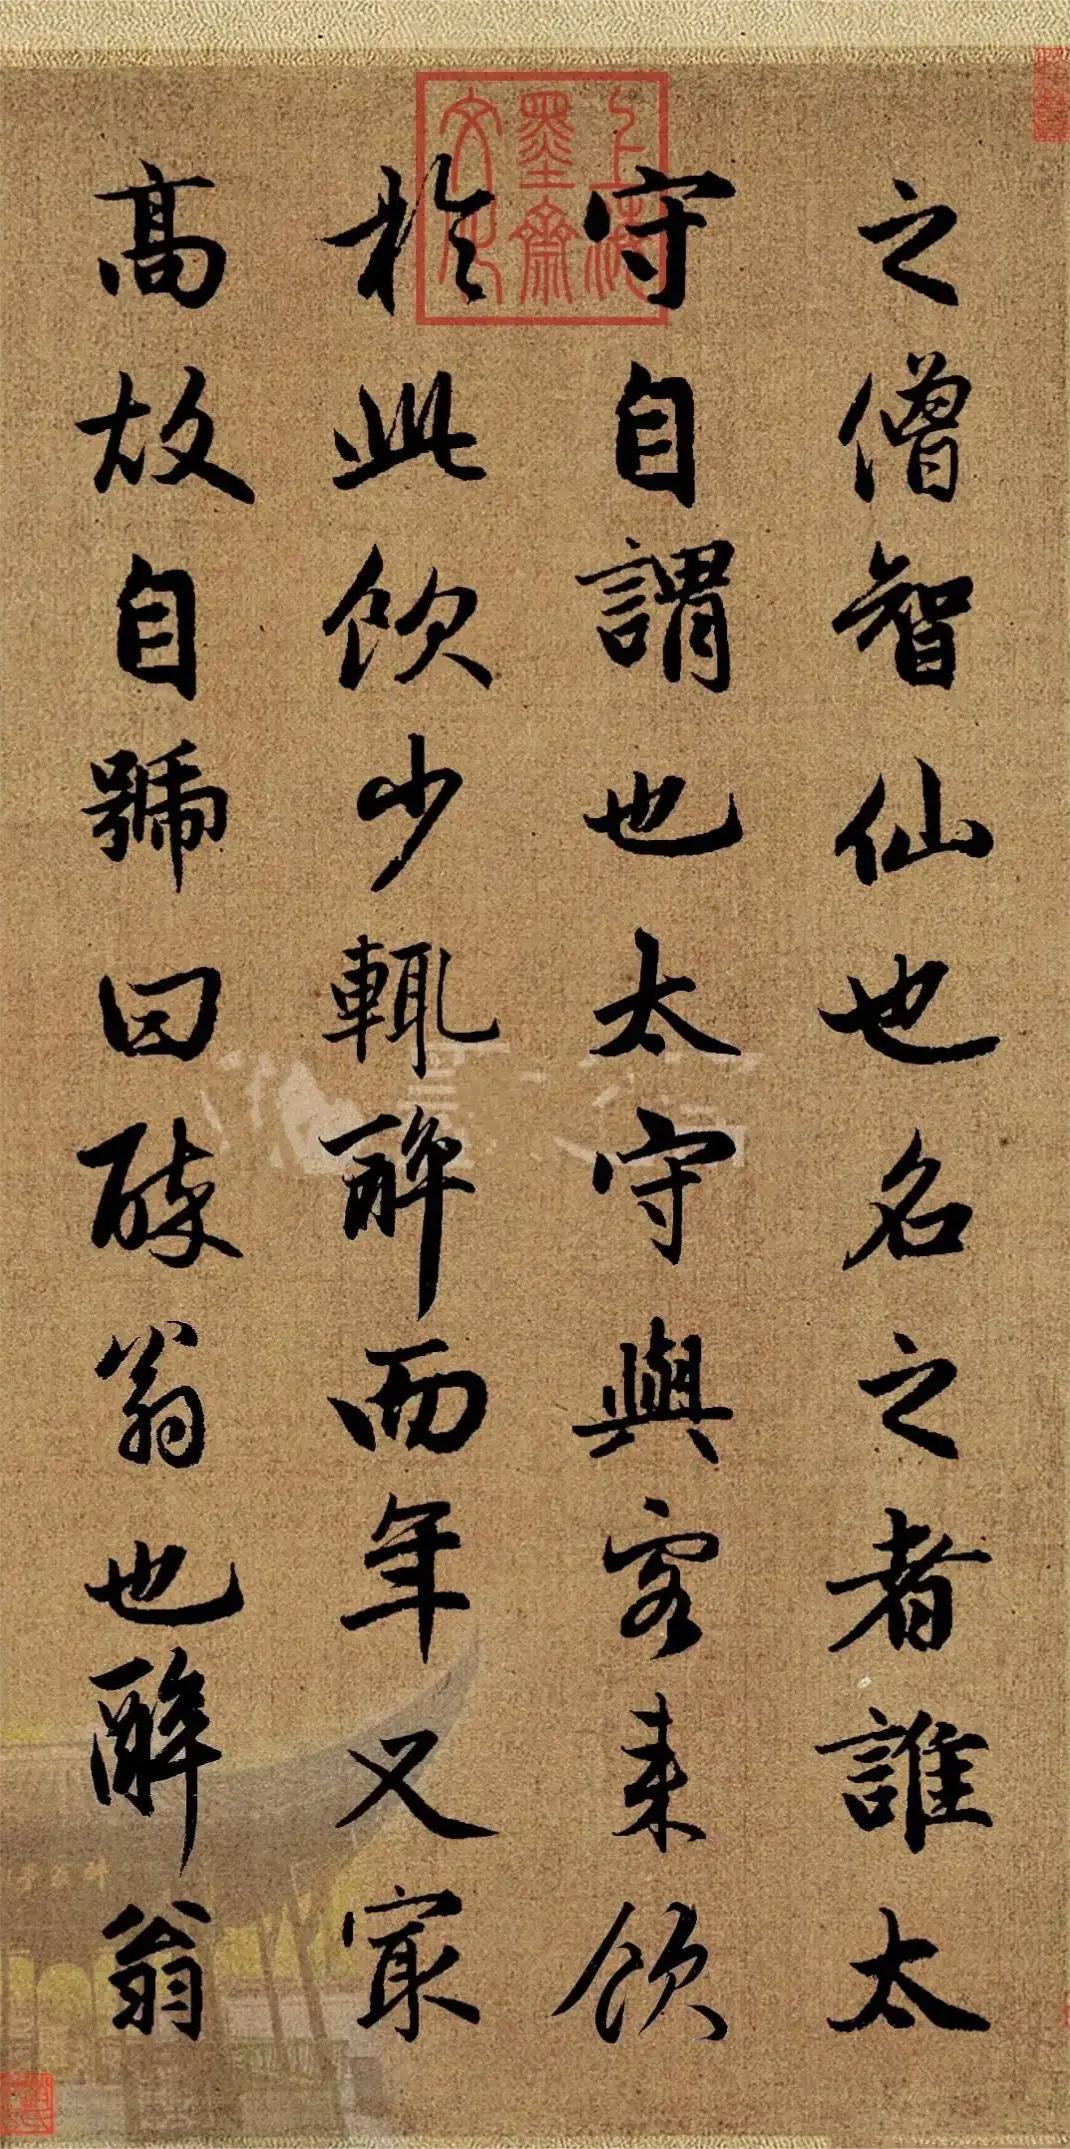 之僧智仙也名之者誰太
守自謂也太守與客来飲
於此飲少輒醉而年又寂
髙故自號曰醉翁也醉翁